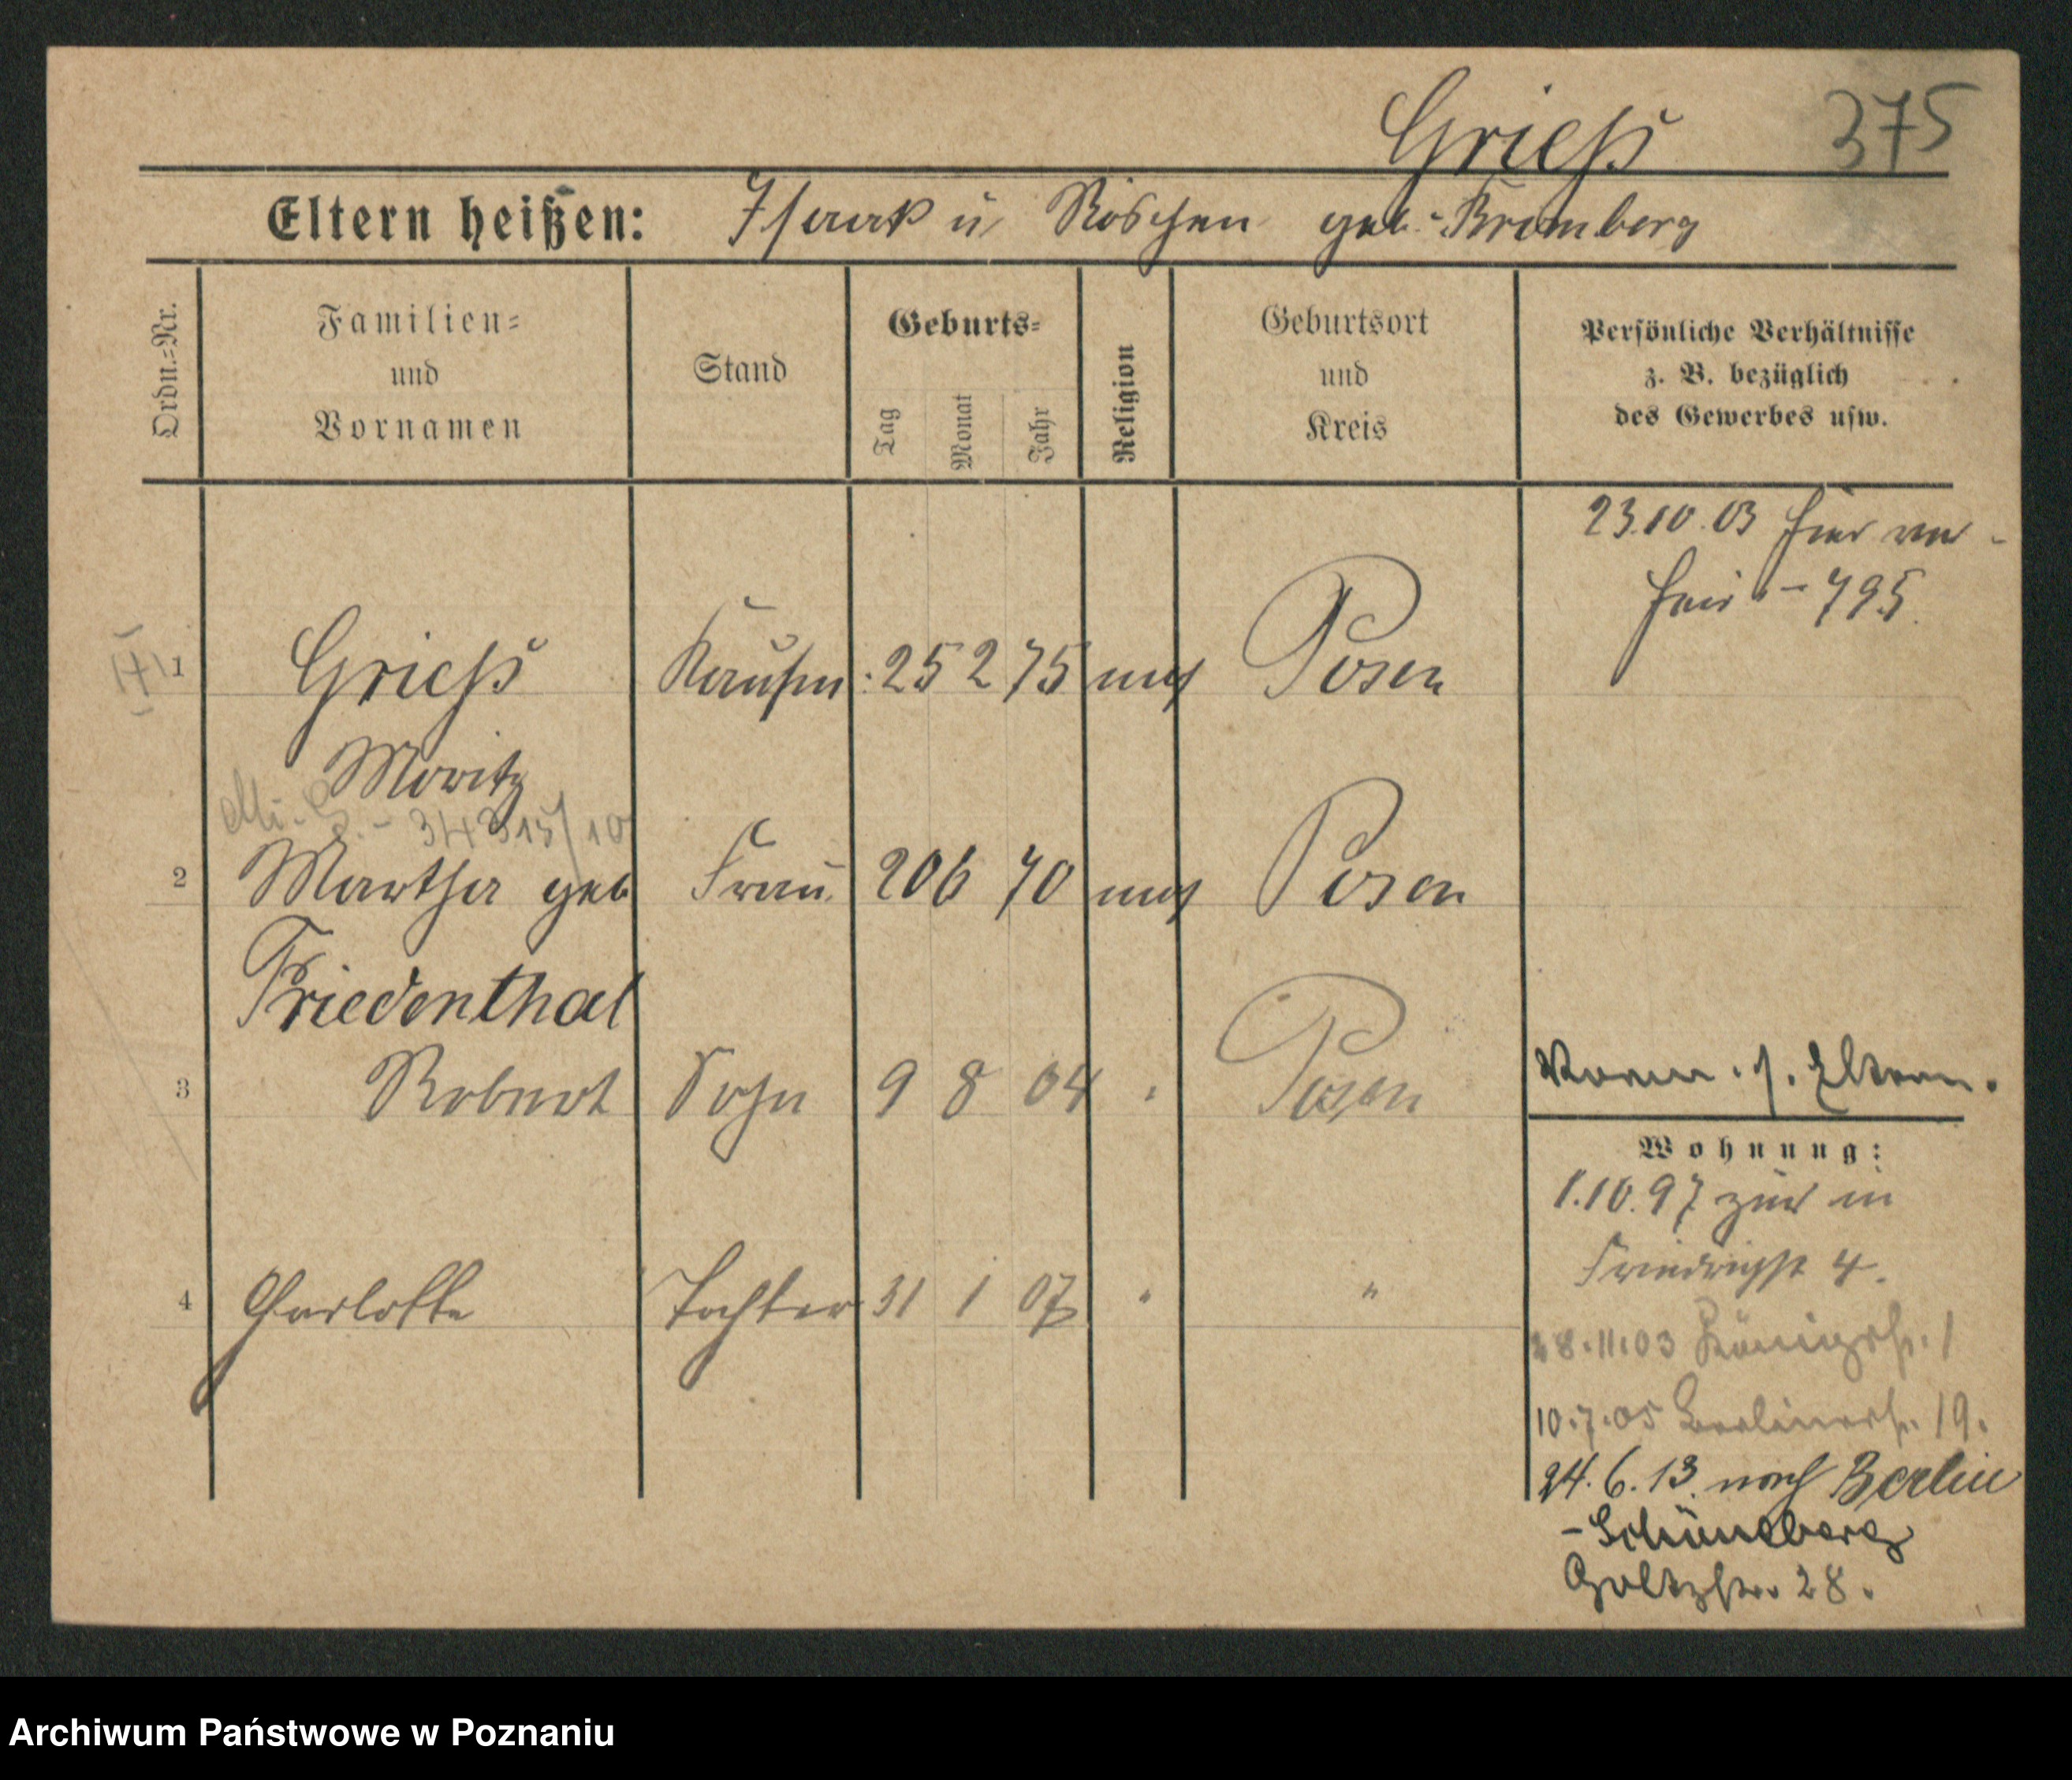 Grieß 375
Eltern heißen: Isaak u Röschen geb. Bromberg
Ordn.=Nr.
Familien=
und
Vornamen
Stand
Geburts=
Tag
Monat
Jahr
Religion
Geburtsort
und
Kreis
Persönliche Verhältnisse
z. B. bezüglich
des Gewerbes usw.
23.10.03 hier ver-
heir. - 795.
1 Grieß Kaufm: 25 2 75 mos Posen
Moritz
34315/10
2 Martha geb Frau 20 6 70 mos Posen
Friedenthal
3 Robert Sohn 9 8 04 " Posen
4 Charlotte Tochter 31 1 07 " "
Eltern.
Wohnung:
1.10.97 zur in
Friedrichst 4.
28.11.03 Königstr. 1
10.7.05 Berlinerstr. 19.
24.6.13. nach Berlin
-Schöneberg
Goltzstr. 28.
Archiwum Państwowe w Poznaniu